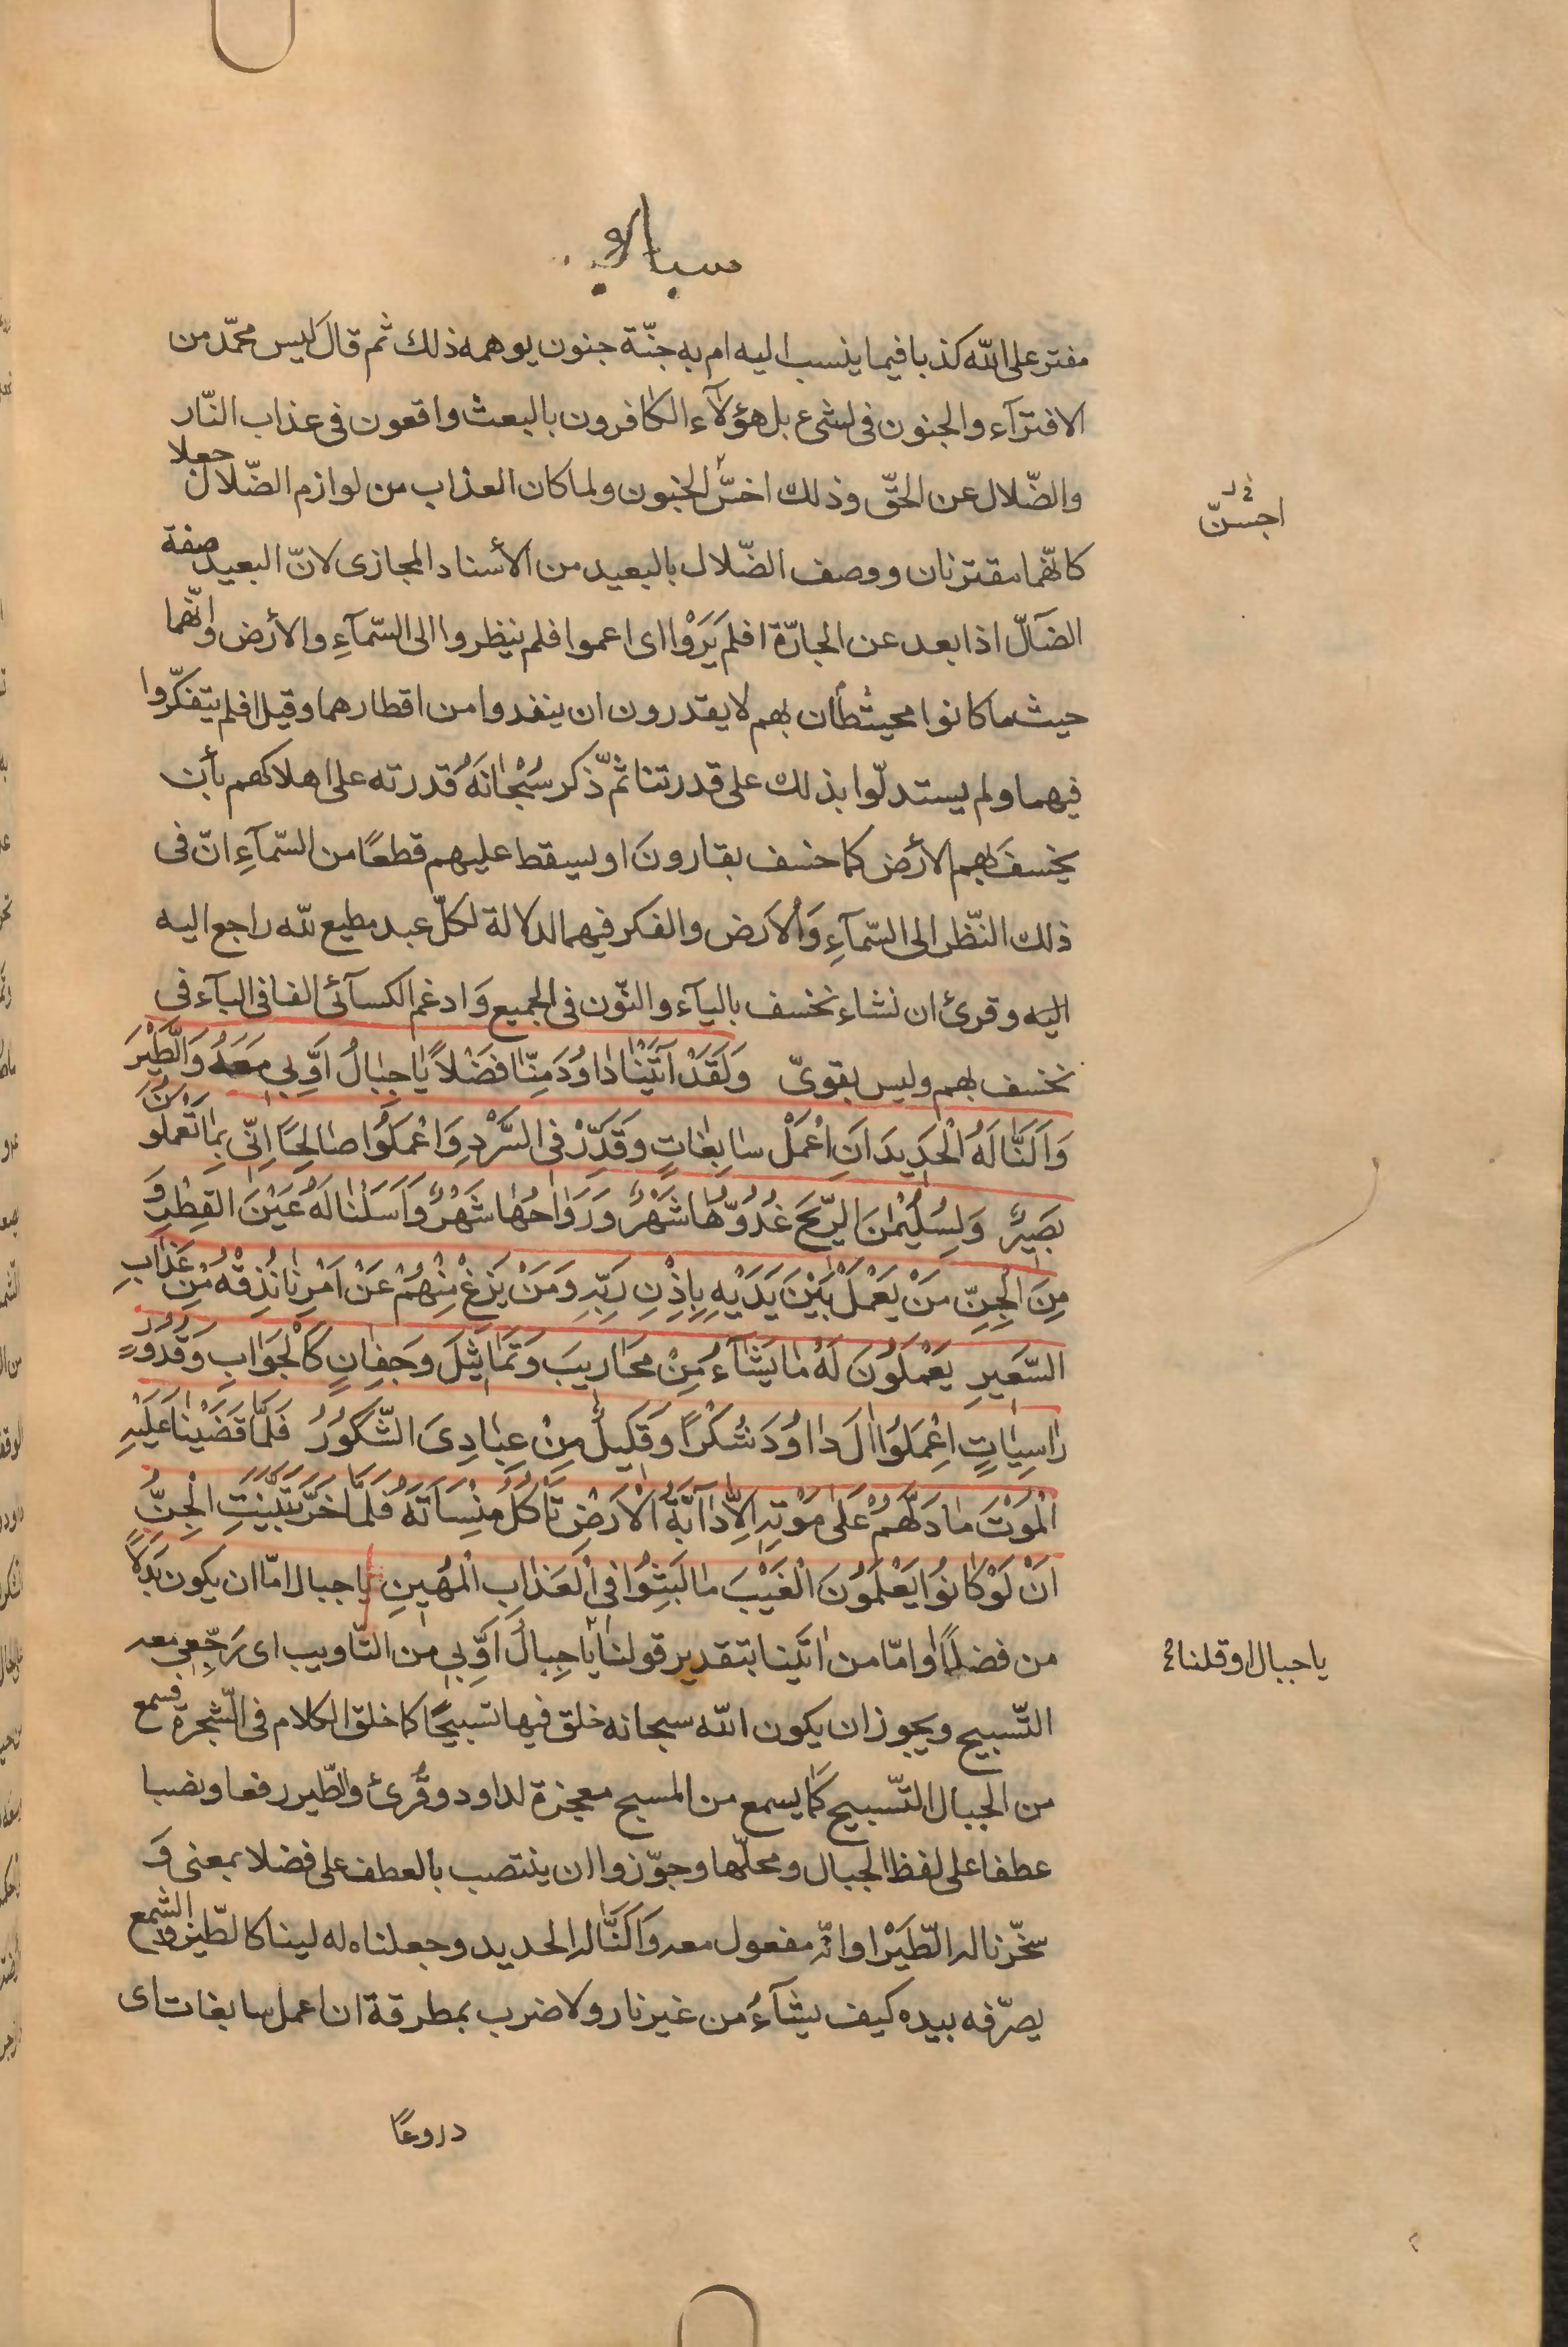 سبا
مفتر على اللّه كذبا فيما ينسب اليه ام به جنّة جنون يوهمه ذلك ثم قال ليس محمّد من
الافترآء والجنون فى شىء بل هؤلآء الكافرون بالبعث واقعون فى عذاب النّار
والضّلال عن الحقّ وذلك اخسّ الجنون ولما كان العذاب من لوازم الضّلال جعلا
اجسنّ
كانّهما مقترنان ووصف الضّلال بالبعيد من الأسناد المجازى لانّ البعيد صفة
الضآلّ اذا بعد عن الجادّة افلم يَرَوْا اى اعموا فلم ينظروا الى السّمآءِ والأرض وانّهما
حيث ما كانوا محيطأن بهم لا يقدرون ان ينفدوا من اقطارهما وقيل افلم يتفكّروا
فيهما ولم يستدلّوا بذلك على قدرتنا ثمّ ذكر سُبْحانَهُ قدرته على اهلاكهم بأن
يخسفَ بهم الأرض كما خسف بقارونَ او يسقط عليهم قطعًا من السّمآءِ انّ فى
ذلك النّظر الى السّمآءِ وَالأرض والفكر فيهما لدلالة لكلّ عبد مطيع للّه راجع اليه
اليه وقرئ ان نشاء نخسف باليآء والنّون فى الجميع وَادغم الكسآئى الفا فى البآء فى
نخسف بهم وليس بقوىّ وَلَقَدْ آتَيْنا داوُدَ مِنّا فَضْلاً يا جِبالُ اَوِّبى مَعَهُ وَالطَّيْرَ
وَاَلَنّا لَهُ الْحَديدَ اَنِ اعْمَلْ سابِغاتٍ وَقَدِّرْ فى السَّرْدِ وَاعْمَلُوا صالِحًا اِنّى بِما تَعْمَلُونَ
بَصيرٌ وَلِسُلَيْمٰنَ الرّيحَ غُدُوُّها شَهْرٌ وَرَوٰاحُها شَهْرٌ وَاَسَلْنا لَهُ عَيْنَ القِطْرِ وَ
مِنَ الْجِنِّ مَنْ يَعْمَلُ بَيْنَ يَدَيْهِ بِاِذْنِ رَبِّهِ وَمَنْ يَزِغْ مِنْهُمْ عَنْ اَمْرِنا نُذِقْهُ مِنْ عَذابِ
السَّعيرِ يَعْمَلُونَ لَهُ ما يَشآءُ مِنْ مَحاريبَ وَتَماثيلَ وَجِفانٍ كَالْجَوابِ وَقُدُورٍ
راسِياتٍ اِعْمَلُوا الَ داوُدَ شُكْرًا وَقَليلٌ مِنْ عِبادِىَ الشَّكُورُ فَلَمّا قَضَيْنا عَلَيْهِ
الْمَوْتَ ما دَلَّهُمْ عَلى مَوْتِهِ اِلاّ دآبَّةُ الْاَرْضِ تَأكُلُ مِنْسَاَتَهُ فَلَمّا خَرَّ تَبَيَّنَتِ الْجِنُّ
اَنْ لَوْ كانُوا يَعْلَمُونَ الْغَيْبَ ما لَبِثُوا فى الْعَذابِ الْمُهينِ يا جبال امّا ان يكون بَدَلًا
من فضلًا وامّا من اتَينا بتقدير قولنا يا جِبالُ اَوِّبى من التّاويب اى رَجِّعى معه
يا جبال او قلنا
التّسبيح ويجوز ان يكون اللّه سبحانه خلق فيها تسبيحًا كما خلق الكلام فى الشّجرة فسمع
من الجبال التّسبيح كما يسمع من المسبح معجزة لداود وقُرئ والطّير رفعا ونصبا
عطفا على لفظ الجبال ومحلّها وجوّزوا ان ينتصب بالعطف على فضلا بمعنى وَ
سخّرنا له الطّيَرْ او انّه مفعول معه وَاَلَنَّا له الحديد وجعلناه له لينا كالطّين والشمع
يصرّفه بيده كيف يشآءُ من غير نار ولا ضرب بمطرقة ان اعمل سابغات اى
دروعًا